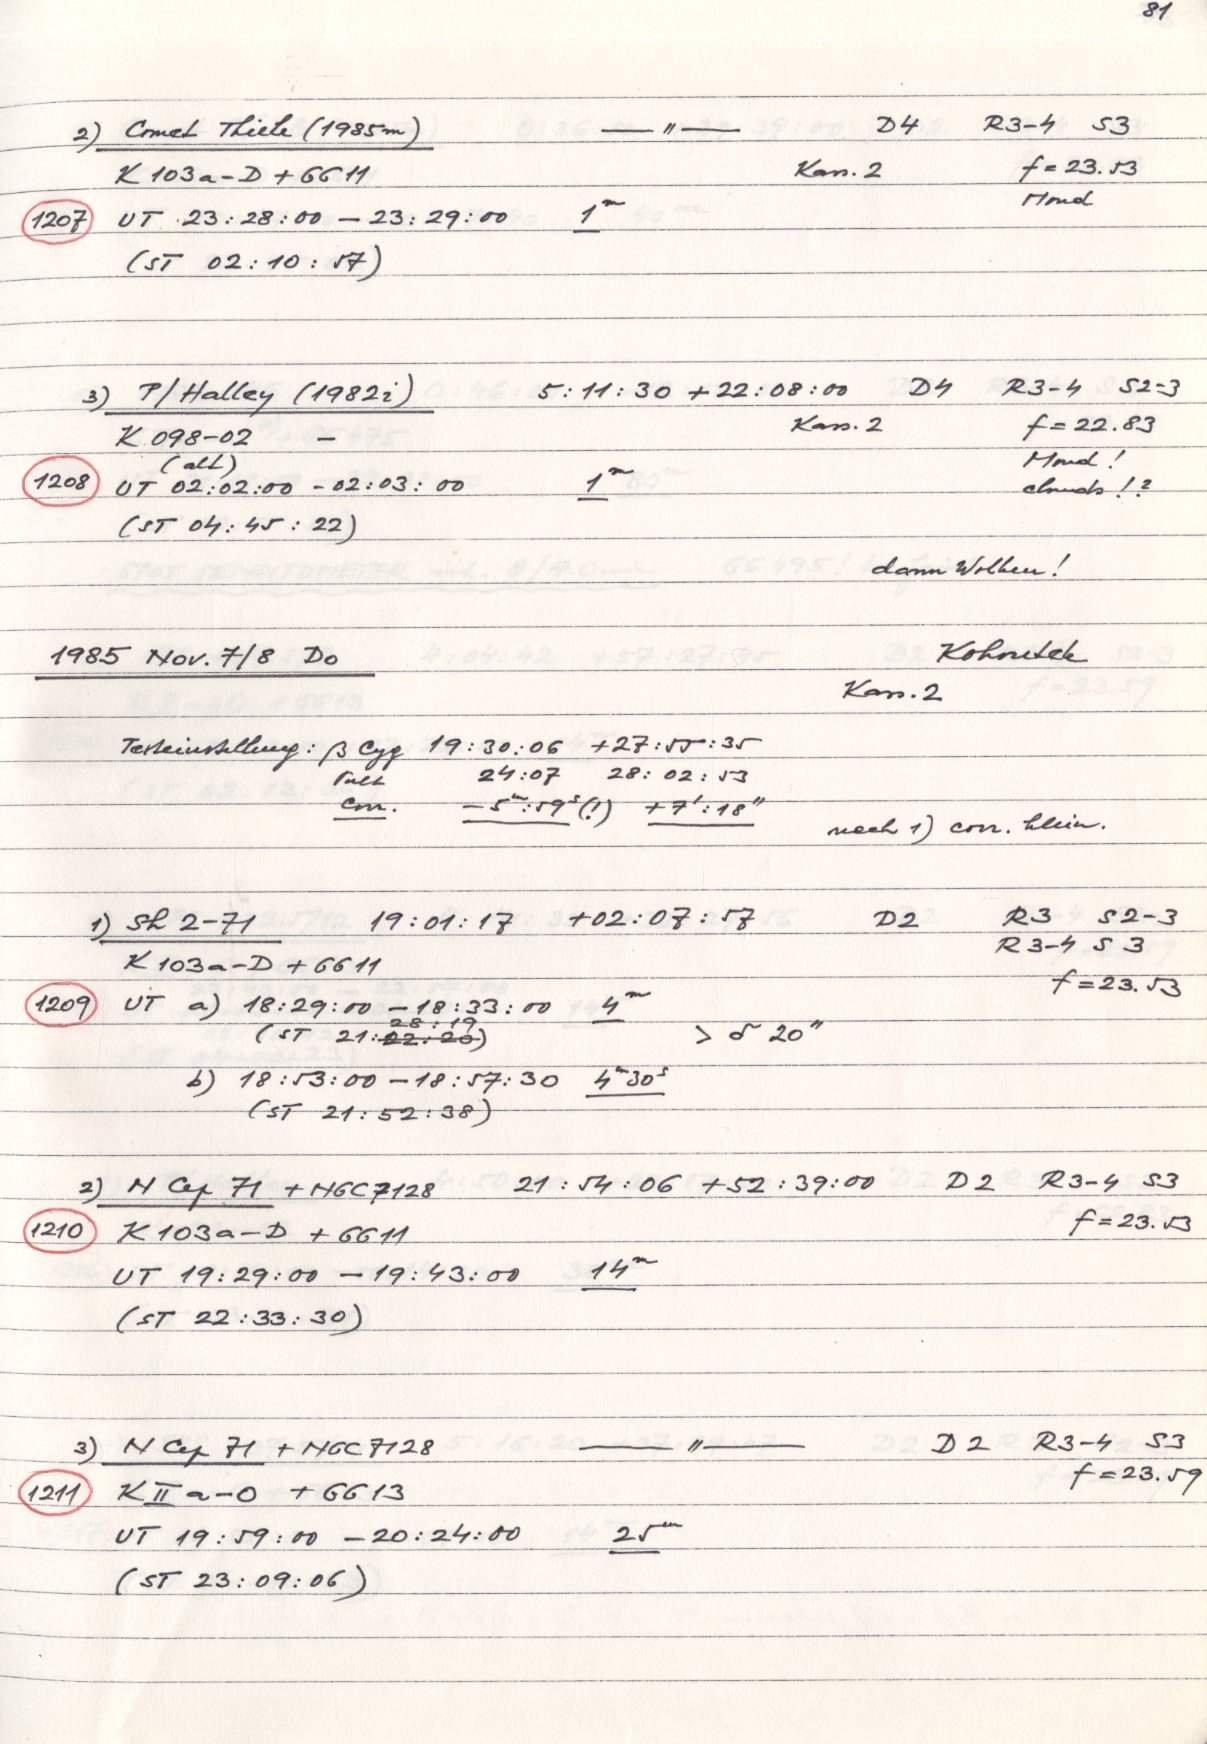 81
2) Comet Thiele (1985m) — " — D4 R3-4 S3
K 103a-D + 6611 Kass. 2 f = 23.53
Mond
1207 UT 23:28:00 - 23:29:00 1m
(ST 02:10:57)
3) P/Halley (1982i) 5:11:30 +22:08:00 D4 R3-4 S2-3
K 098-02 - Kass. 2 f = 22.83
(alt) Mond!
1208 UT 02:02:00 - 02:03:00 1m clouds!?
(ST 04:45:22)
dann Wolken!
1985 Nov. 7/8 Do Kohoutek
Kass. 2
Testeinstellung: β Cyg 19:30:06 +27:55:35
Pult 24:07 28:02:53
Corr. -5m:59s(!) +7':18"
nach 1) corr. klein.
1) Sh 2-71 19:01:17 +02:07:57 D2 R3 S2-3
R3-4 S3
K 103a-D + 6611 f = 23.53
1209 UT a) 18:29:00 - 18:33:00 4m
28:19
(ST 21:02:20) > δ 20"
b) 18:53:00 - 18:57:30 4m30s
(ST 21:52:38)
2) N Cep 71 + NGC 7128 21:54:06 +52:39:00 D2 R3-4 S3
f = 23.53
1210 K 103a-D + 6611
UT 19:29:00 - 19:43:00 14m
(ST 22:33:30)
3) N Cep 71 + NGC 7128 — " — D2 R3-4 S3
f = 23.59
1211 K II a-O + 6613
UT 19:59:00 - 20:24:00 25m
(ST 23:09:06)